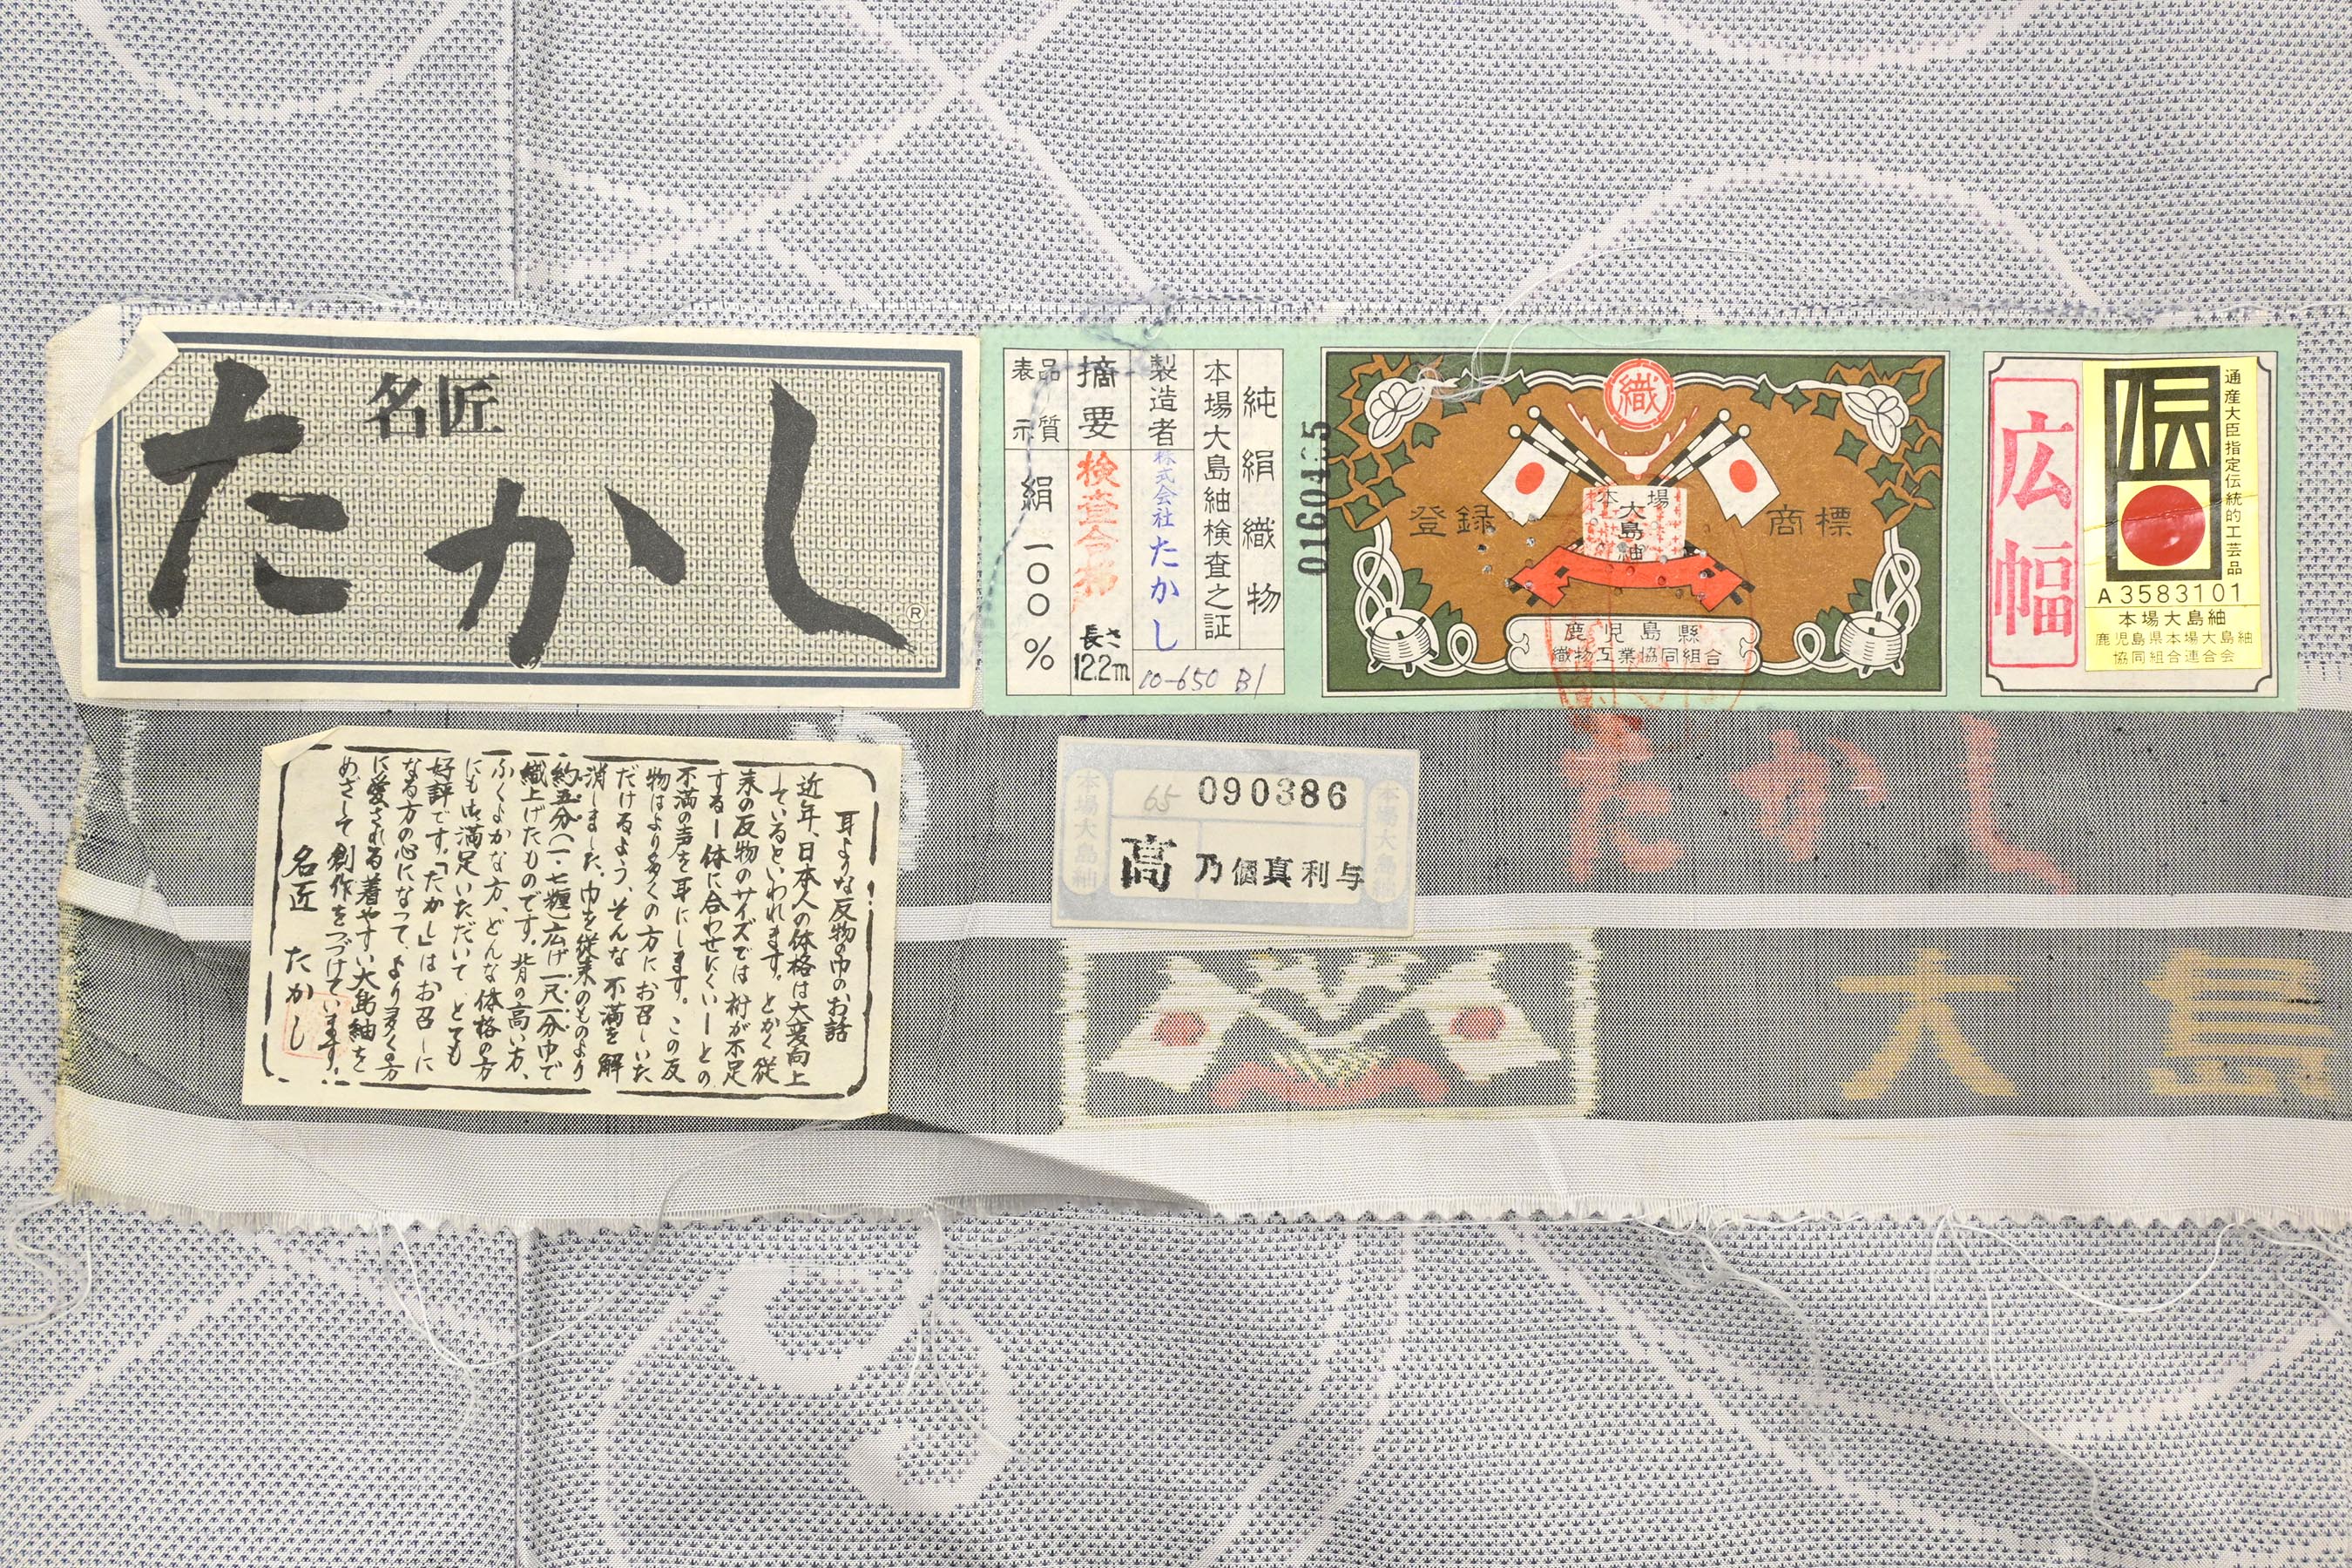 名匠
たかし
®
純絹織物
本場大島紬検査之証
製造者 株式会社たかし
摘要 検査合格
長さ
12.2m
品質表示
絹一〇〇%
10-650 B1
織
登録
商標
本場
大島紬
鹿児島縣
織物工業協同組合
広幅
伝
通産大臣指定伝統的工芸品
A3583101
本場大島紬
鹿児島県本場大島紬
協同組合連合会
耳よりな反物の巾のお話
近年、日本人の体格は大変向上
しているといわれます。とかく従
来の反物のサイズでは裄が不足
する―体に合わせにくい―との
不満の声を耳にします。この反
物はより多くの方にお召しいた
だけるよう、そんな不満を解
消しました。巾を従来のものより
約五分(一・七糎)広げ一尺一分巾で
織上げたものです。背の高い方、
ふくよかな方、どんな体格の方
にも御満足いただいてとても
好評です。「たかし」はお召しに
なる方の心になって、より多くの方
に愛される着やすい大島紬を
めざして創作をつづけています。
名匠 たかし
本場大島紬
65 090386
高 乃個真利与
本場大島紬
たかし
大島